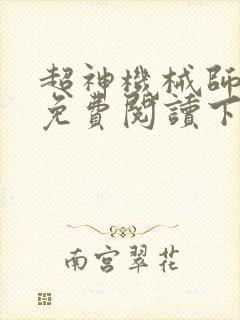 超神機械師
免費閱讀下
南宮翠花